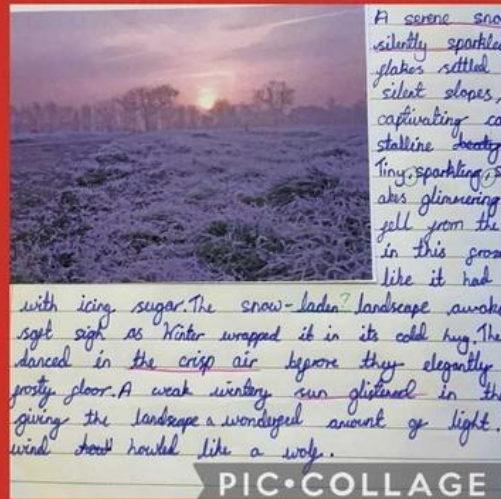 A serene sno
silently sparkled
flakes settled
silent slopes,
captivating
stalline beaty
Tiny, sparkling, s
akes glimmering
fell from the
in this
like it had
with icing sugar. The snow-laden? landscape awake
soft sigh as Winter wrapped it in its cold hug. The
danced in the crisp air before they elegantly
frosty floor. A weak wintery sun glistened in the
giving the landscape a wonderful amount of light.
wind howled like a wolf.
PIC•COLLAGE